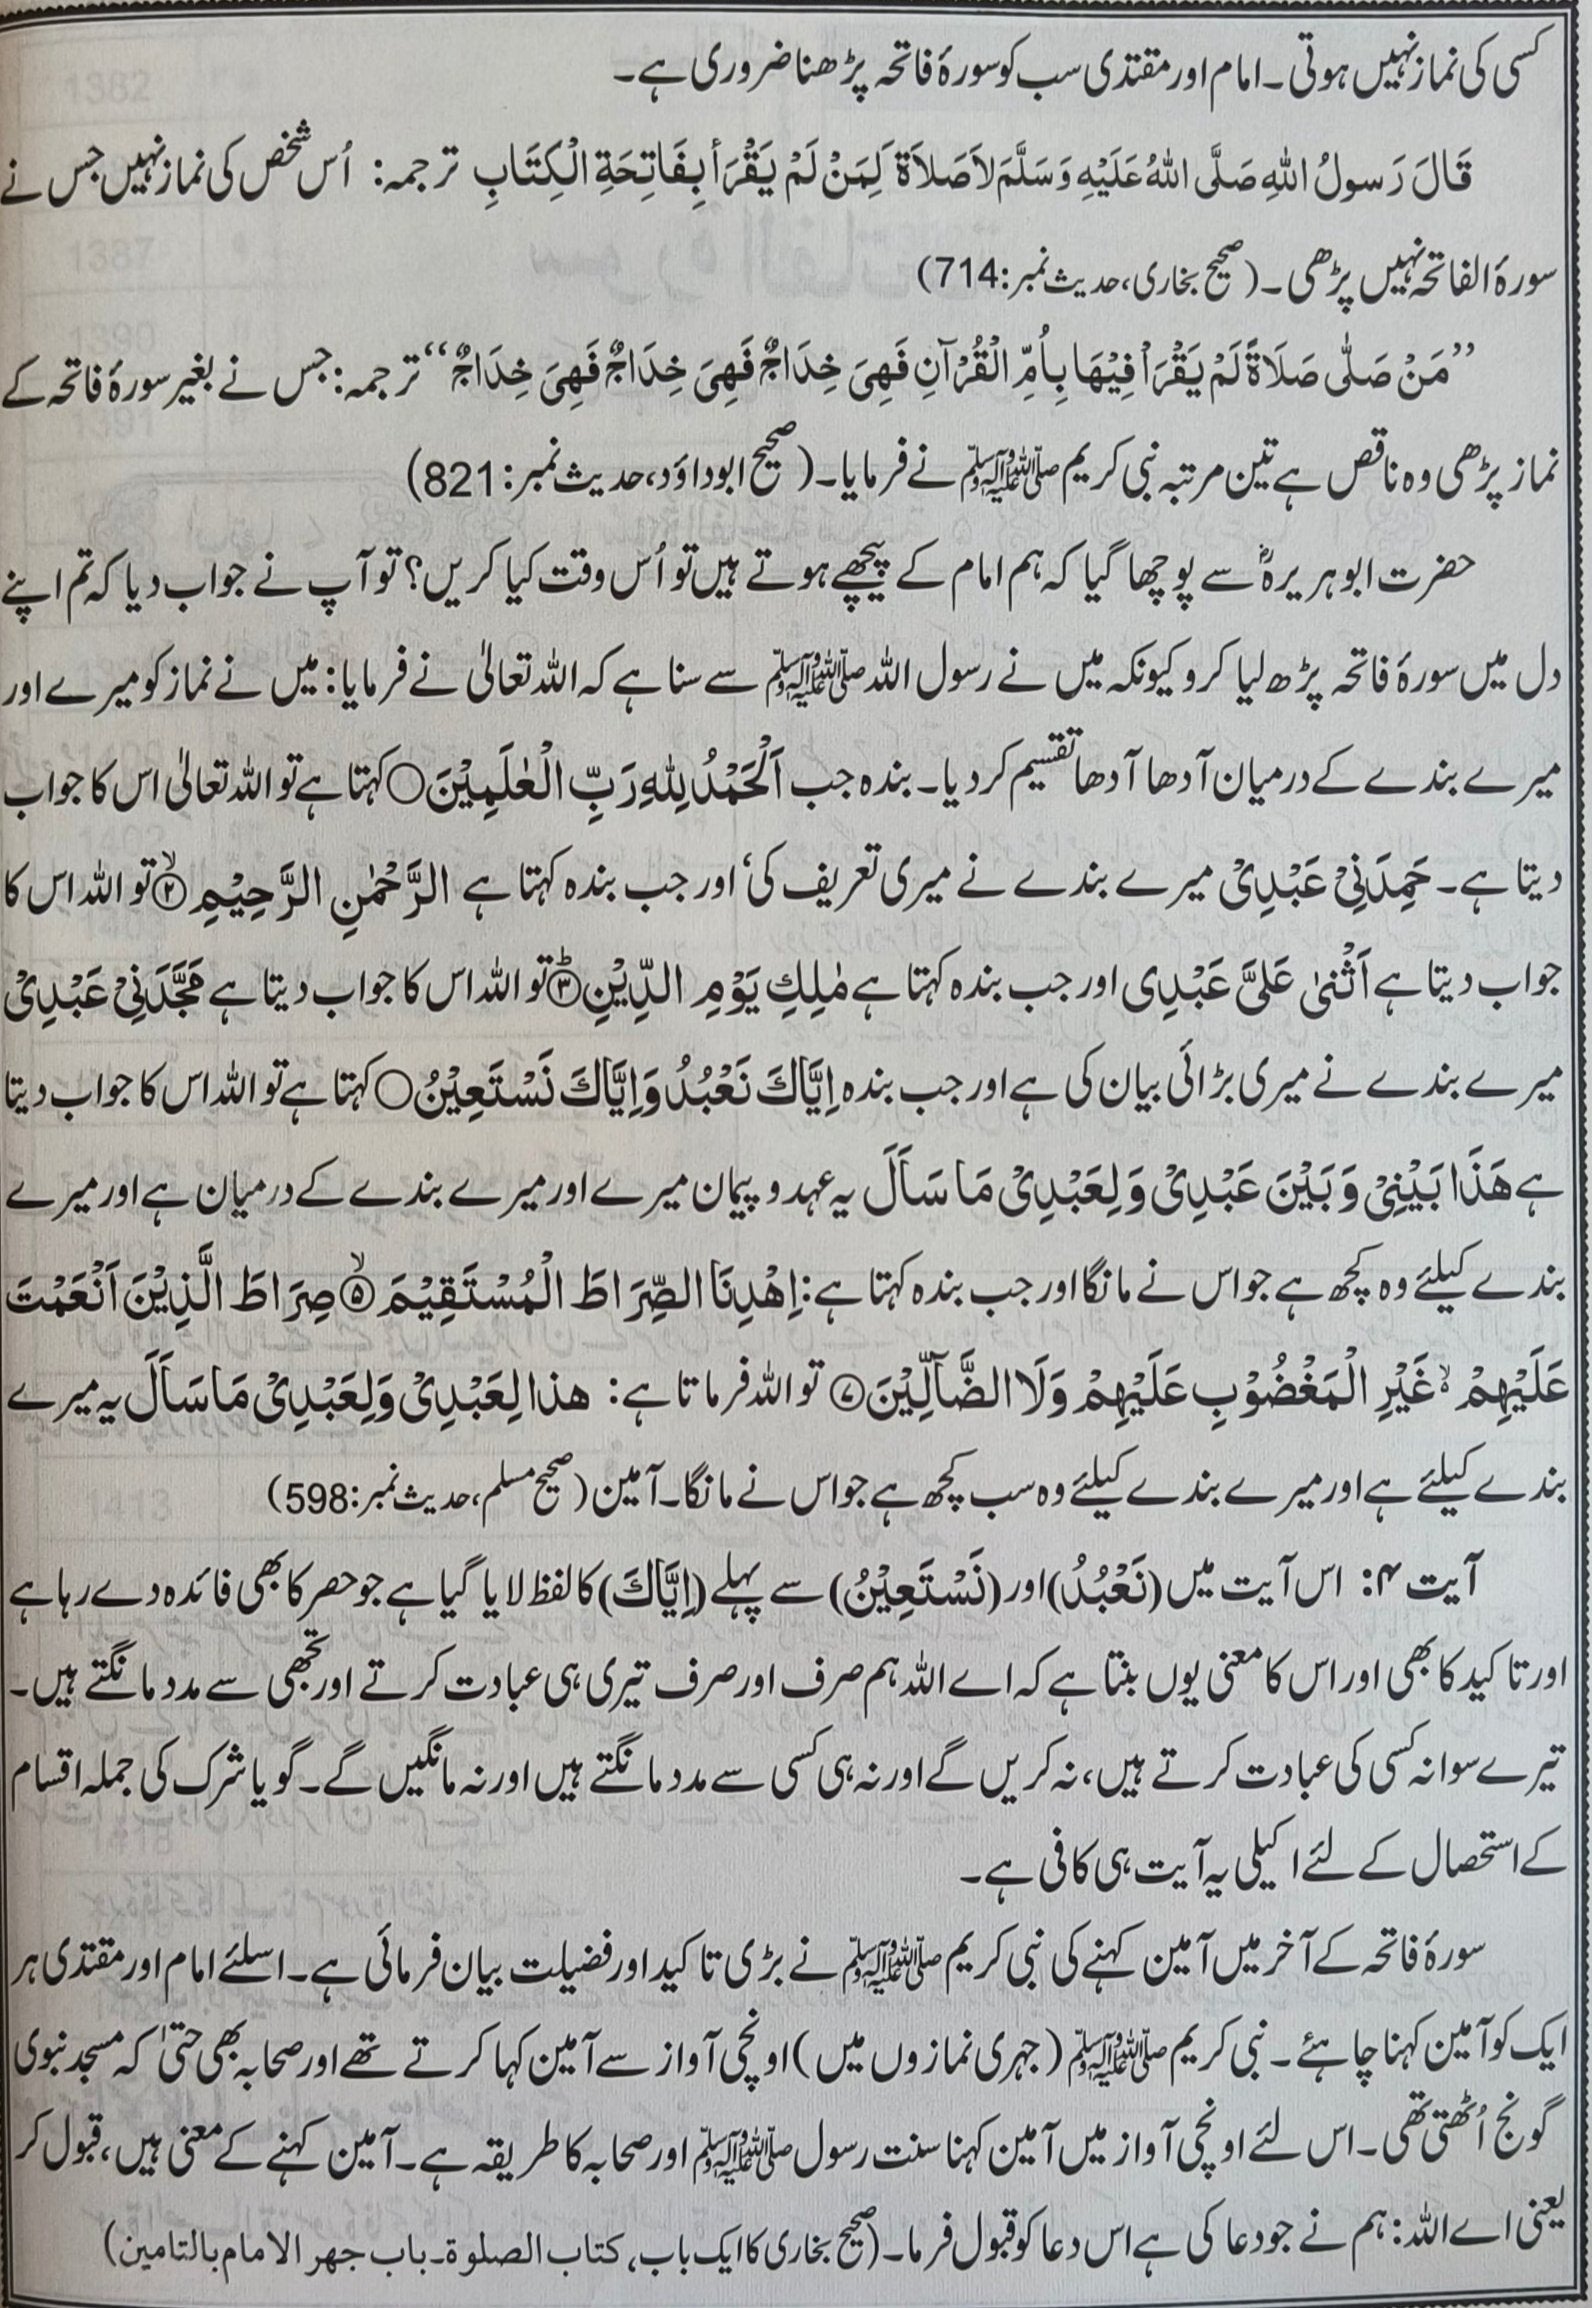 کسی کی نماز نہیں ہوتی۔ امام اور مقتدی سب کو سورۂ فاتحہ پڑھنا ضروری ہے۔
قَالَ رَسولُ اللهِ صَلَّى اللهُ عَلَيْهِ وَسَلَّمَ لاَ صَلاَةَ لِمَنْ لَمْ يَقْرَأ بِفَاتِحَةِ الْكِتَابِ ترجمہ: اُس شخص کی نماز نہیں جس نے
سورۂ الفاتحہ نہیں پڑھی۔ (صحیح بخاری، حدیث نمبر: 714)
’’مَنْ صَلّٰى صَلَاةً لَمْ يَقْرَأْ فِيْهَا بِاُمِّ الْقُرْآنِ فَهِيَ خِدَاجٌ فَهِيَ خِدَاجٌ فَهِيَ خِدَاجٌ‘‘ ترجمہ: جس نے بغیر سورۂ فاتحہ کے
نماز پڑھی وہ ناقص ہے تین مرتبہ نبی کریم ﷺ نے فرمایا۔ (صحیح ابوداؤد، حدیث نمبر: 821)
حضرت ابوہریرہؓ سے پوچھا گیا کہ ہم امام کے پیچھے ہوتے ہیں تو اُس وقت کیا کریں؟ تو آپ نے جواب دیا کہ تم اپنے
دل میں سورۂ فاتحہ پڑھ لیا کرو کیونکہ میں نے رسول اللہ ﷺ سے سنا ہے کہ اللہ تعالیٰ نے فرمایا: میں نے نماز کو میرے اور
میرے بندے کے درمیان آدھا آدھا تقسیم کر دیا۔ بندہ جب اَلْحَمْدُ لِلّٰهِ رَبِّ الْعٰلَمِيْنَ○ کہتا ہے تو اللہ تعالیٰ اس کا جواب
دیتا ہے۔ حَمِدَنِيْ عَبْدِيْ میرے بندے نے میری تعریف کی‘ اور جب بندہ کہتا ہے الرَّحْمٰنِ الرَّحِيْمِ ۙ﴿۲﴾ تو اللہ اس کا
جواب دیتا ہے اَثْنٰى عَلَيَّ عَبْدِى اور جب بندہ کہتا ہے مٰلِكِ يَوْمِ الدِّيْنِ ؕ﴿۳﴾ تو اللہ اس کا جواب دیتا ہے مَجَّدَنِيْ عَبْدِيْ
میرے بندے نے میری بڑائی بیان کی ہے اور جب بندہ اِيَّاكَ نَعْبُدُ وَاِيَّاكَ نَسْتَعِيْنُ○ کہتا ہے تو اللہ اس کا جواب دیتا
ہے هَذَا بَيْنِيْ وَبَيْنَ عَبْدِيْ وَلِعَبْدِيْ مَا سَاَلَ یہ عہد و پیمان میرے اور میرے بندے کے درمیان ہے اور میرے
بندے کیلئے وہ کچھ ہے جو اس نے مانگا اور جب بندہ کہتا ہے: اِهْدِنَا الصِّرَاطَ الْمُسْتَقِيْمَ ۙ﴿۵﴾ صِرَاطَ الَّذِيْنَ اَنْعَمْتَ
عَلَيْهِمْ ۙ۬ غَيْرِ الْمَغْضُوْبِ عَلَيْهِمْ وَلَا الضَّآلِّيْنَ ﴿۷﴾ تو اللہ فرماتا ہے: هذا لِعَبْدِيْ وَلِعَبْدِيْ مَا سَاَلَ یہ میرے
بندے کیلئے ہے اور میرے بندے کیلئے وہ سب کچھ ہے جو اس نے مانگا۔ آمین (صحیح مسلم، حدیث نمبر: 598)
آیت ۴: اس آیت میں (نَعْبُدُ) اور (نَسْتَعِيْنُ) سے پہلے (اِيَّاكَ) کا لفظ لایا گیا ہے جو حصر کا بھی فائدہ دے رہا ہے
اور تاکید کا بھی اور اس کا معنی یوں بنتا ہے کہ اے اللہ ہم صرف اور صرف تیری ہی عبادت کرتے اور تجھی سے مدد مانگتے ہیں۔
تیرے سوا نہ کسی کی عبادت کرتے ہیں، نہ کریں گے اور نہ ہی کسی سے مدد مانگتے ہیں اور نہ مانگیں گے۔ گویا شرک کی جملہ اقسام
کے استحصال کے لئے اکیلی یہ آیت ہی کافی ہے۔
سورۂ فاتحہ کے آخر میں آمین کہنے کی نبی کریم ﷺ نے بڑی تاکید اور فضیلت بیان فرمائی ہے۔ اسلئے امام اور مقتدی ہر
ایک کو آمین کہنا چاہئے۔ نبی کریم ﷺ (جہری نمازوں میں) اونچی آواز سے آمین کہا کرتے تھے اور صحابہ بھی حتیٰ کہ مسجد نبوی
گونج اُٹھتی تھی۔ اس لئے اونچی آواز میں آمین کہنا سنت رسول ﷺ اور صحابہ کا طریقہ ہے۔ آمین کہنے کے معنی ہیں، قبول کر
یعنی اے اللہ: ہم نے جو دعا کی ہے اس دعا کو قبول فرما۔ (صحیح بخاری کا ایک باب، کتاب الصلوۃ۔ باب جهر الامام بالتامین)